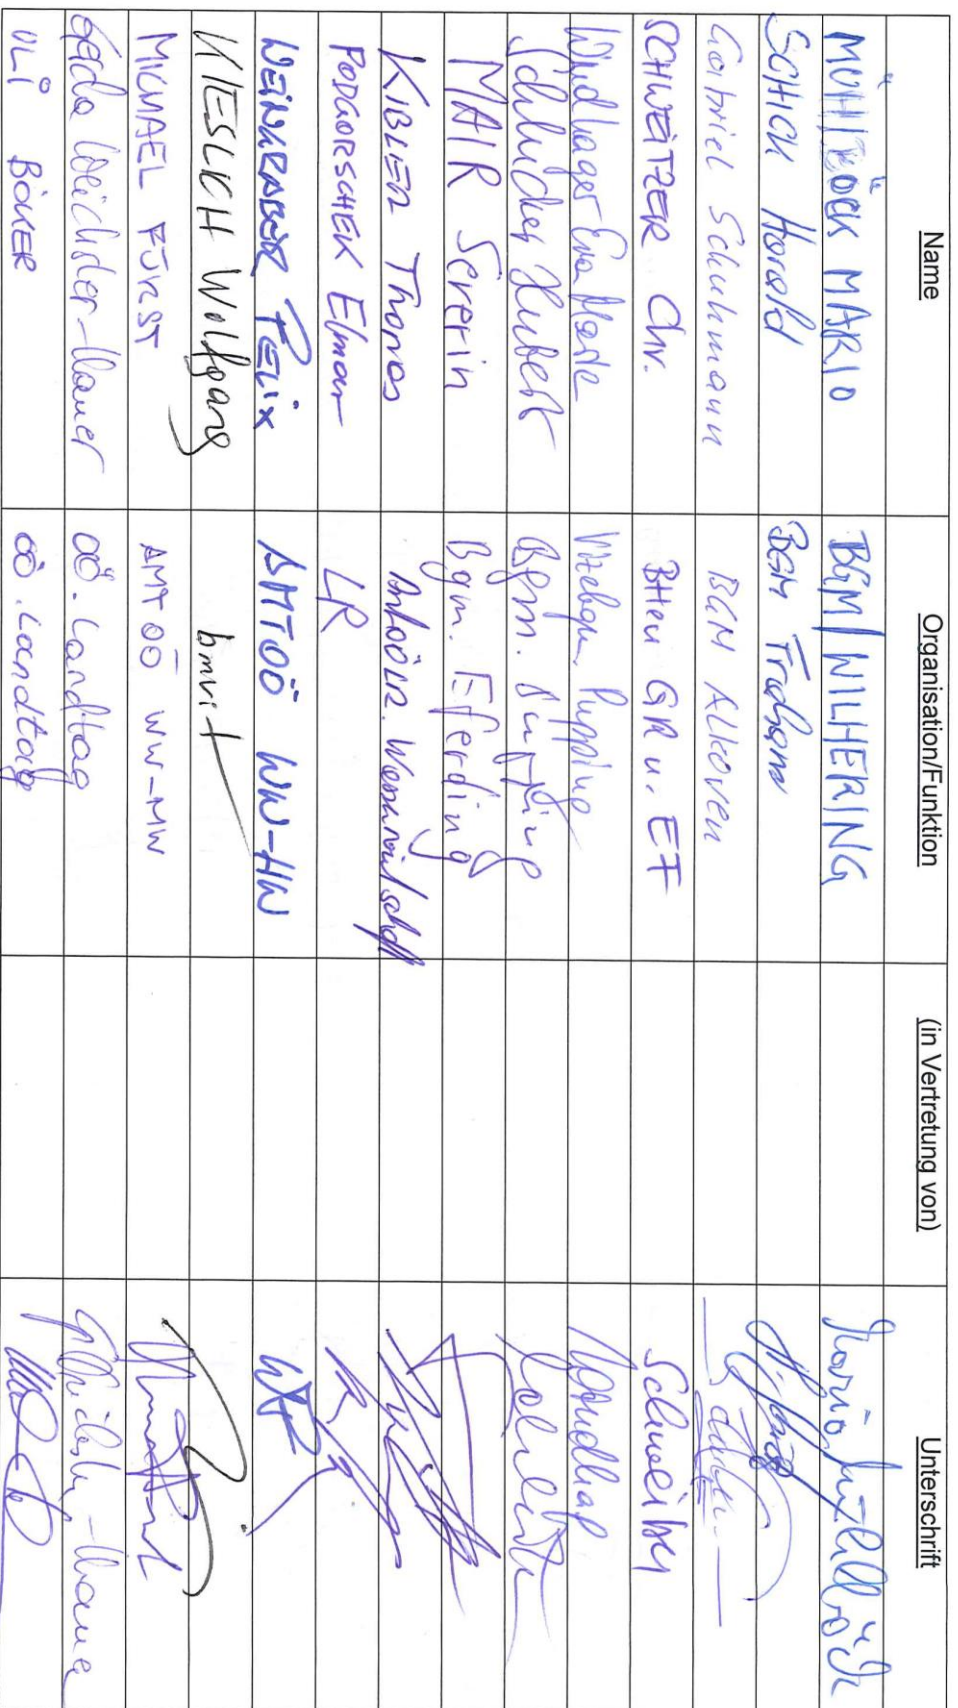 Name Organisation/Funktion (in Vertretung von) Unterschrift
MÜHLBÖCK MARIO BGM WILHERING Mario Mühlböck
SCHICH Harald BGM
Gabriel Schuhmann BGM Alkoven
SCHWEITZER Chr. BHEU GR u. EF Schweitzer
Windhager Eva Maria Vizebgm. Pupping Windhag
Schlucker Hubert Bgm. Pupping
MAIR Severin Bgm. Eferding
KIBLER Thomas
PODGORSCHEK Elmar LR
WEINGRABER FELIX AMTOÖ WW-HW
KIESLICH Wolfgang bmvit
MICHAEL FÜRST AMT OÖ WW-MW
Gerda Weichsler-Hauer OÖ. Landtag
ULI BÖKER OÖ. Landtag